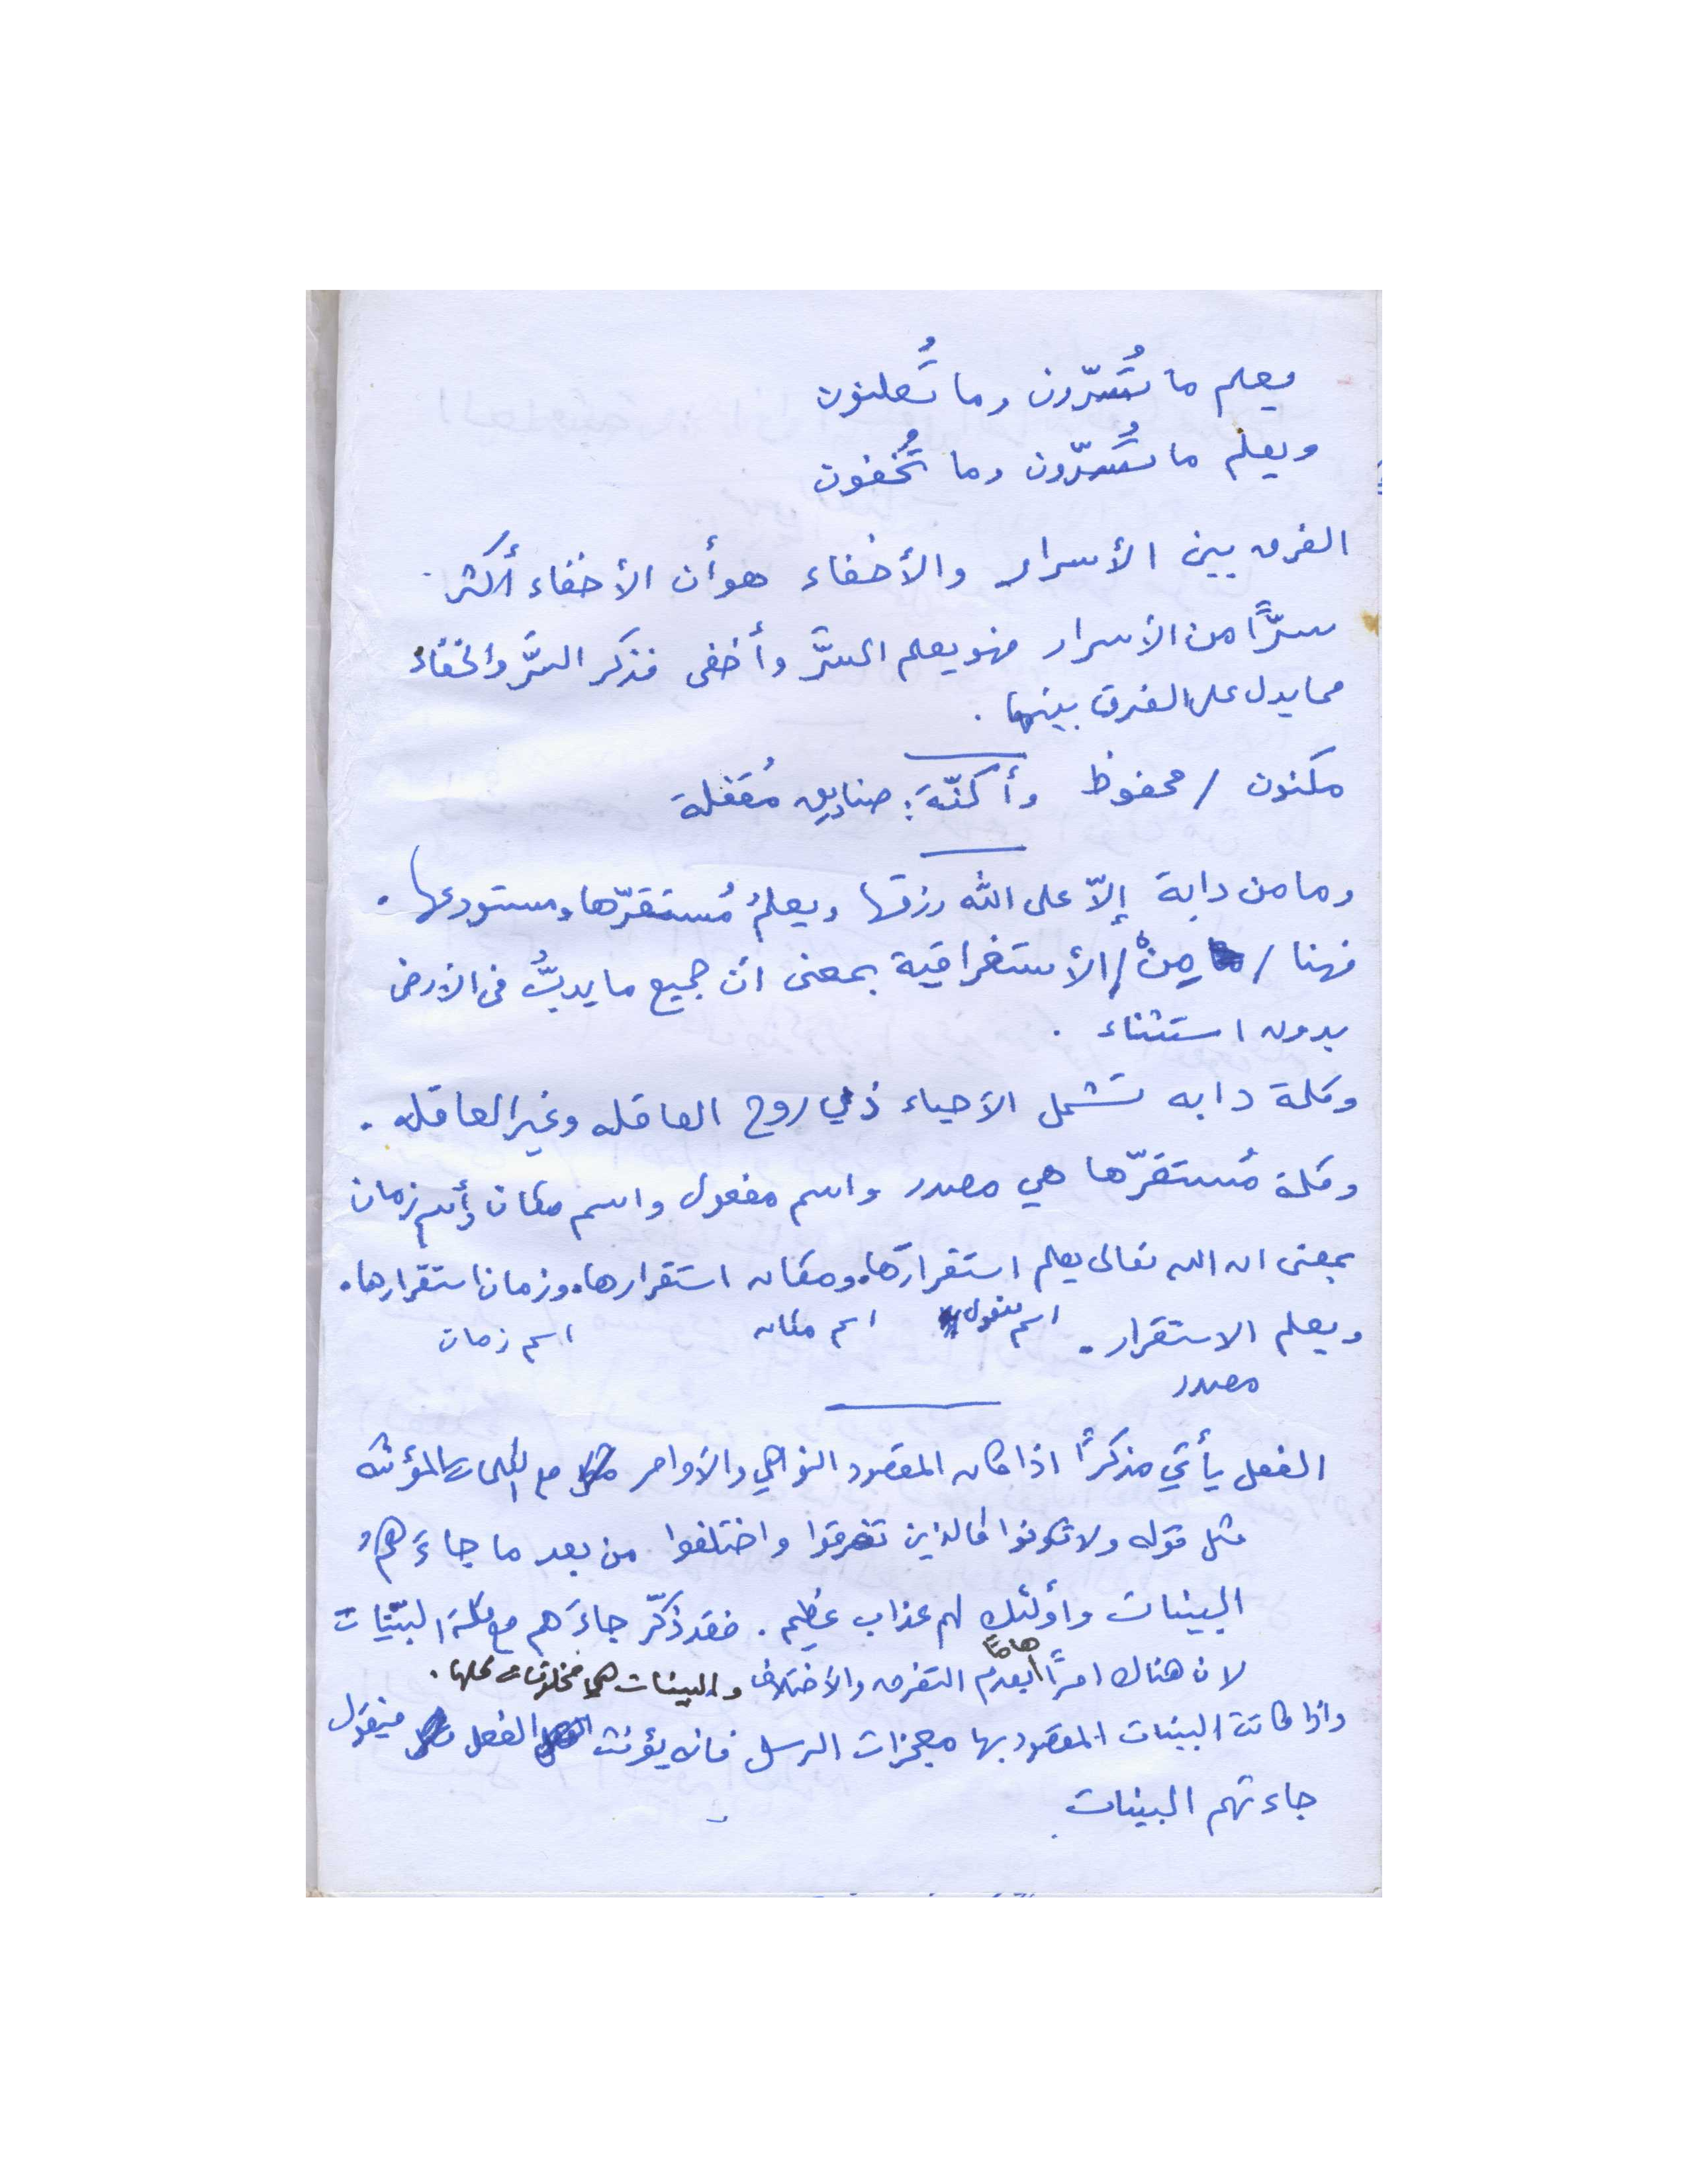 يعلم ما تُسرّون وما تُعلنون
ويعلم ما تُسرّون وما تُخفون
الفرق بين الأسرار والأخفاء هو أن الأخفاء أكثر
سرًّا من الأسرار فهو يعلم السرَّ وأخفى فذكر السرَّ والخفاء
مما يدل على الفرق بينهما .
مكنون / محفوظ وأكنّة : صناديق مُقفلة
وما من دابة إلاّ على الله رزقها ويعلمُ مُستقرّها ومستودعها .
فهنا / مِنْ / الأستغراقية بمعنى ان جميع ما يدبُّ في الارض
بدون استثناء .
وكلمة دابه تشمل الأحياء ذي روح العاقله وغير العاقله .
وكلمة مُستقرّها هي مصدر واسم مفعول واسم مكان وأسم زمان
بمعنى ان الله تعالى يعلم استقرارها. ومكان استقرارها. وزمان استقرارها.
ويعلم الاستقرار . اسم مفعول اسم مكان اسم زمان
مصدر
الفعل يأتي مذكرًا اذا كان المقصود النواهي والأوامر مع الكلمات المؤنثه
مثل قوله ولا تكونوا كالذين تفرقوا واختلفوا من بعد ما جاءَهمُ
البينات وأولئك لهم عذاب عظيم . فقد ذكّر جاءَهم مع كلمة البيّنات
لان هناك امرًا هامًا بعدم التفرق والأختلاف والبينات هي
واذا كانت البينات المقصود بها معجزات الرسل فانه يؤنث الفعل فيقول
جاءتهم البينات